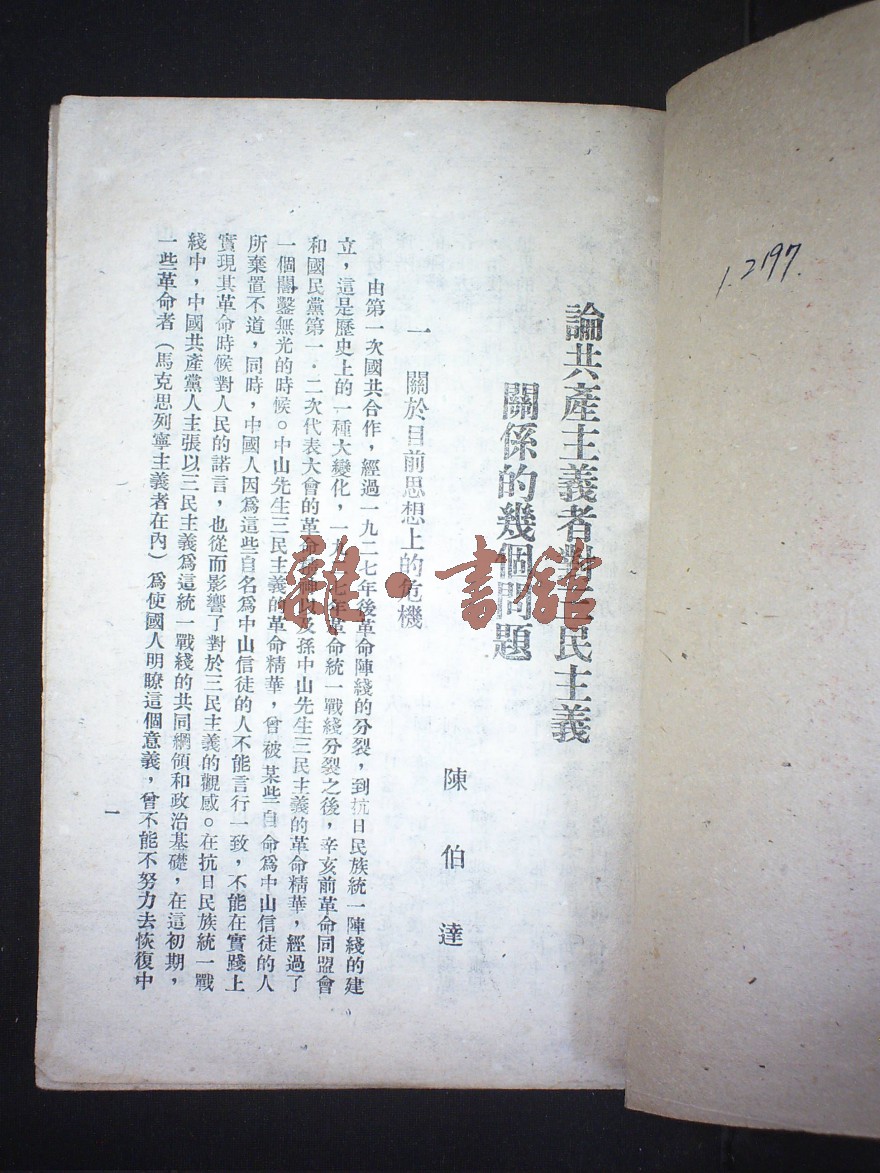 論共產主義者對三民主義
關係的幾個問題
陳伯達
一 關於目前思想上的危機
由第一次國共合作，經過一九二七年後革命陣綫的分裂，到抗日民族統一陣綫的建
立，這是歷史上的一種大變化，一九二七年革命統一戰綫分裂之後，辛亥前革命同盟會
和國民黨第一．二次代表大會的革命精神以及孫中山先生三民主義的革命精華，經過了
一個闇鑿無光的時候。中山先生三民主義的革命精華，曾被某些自命爲中山信徒的人
所棄置不道，同時，中國人因爲這些自名爲中山信徒的人不能言行一致，不能在實踐上
實現其革命時候對人民的諾言，也從而影響了對於三民主義的觀感。在抗日民族統一戰
綫中，中國共產黨人主張以三民主義爲這統一戰綫的共同綱領和政治基礎，在這初期，
一些革命者（馬克思列寧主義者在內）爲使國人明瞭這個意義，曾不能不努力去恢復中
一
1.2197.
雜·書舘